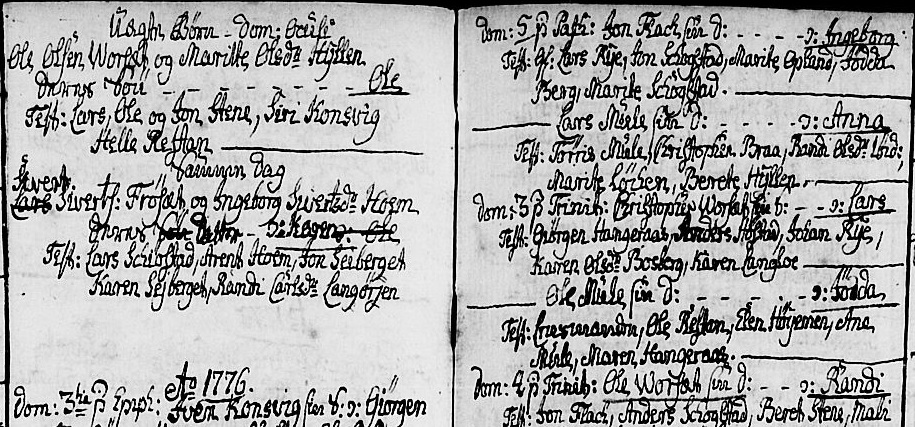 Uægte Børn - dom: Oculi
Ole Olsen Worset og Maritte Olsdr Hyllen
deres Søn - - - - - - - - Ole
Test: Lars, Ole og Jon Stene, Siri Konsvig
Helle Reftan
Samme dag
Sivert
Lars Siverts: Frøset og Ingeborg Sivertsdr Hoem
deres Søn datter - ɔ: Karen ɔ: Ole
Test: Lars Schogstad, Arent Hoem, Jon Seiberget
Karen Seiberget, Randi Carlsdr Langørjen
Ao 1776.
dom: 3tia p Epiph: Iven Konsvig sin S: ɔ: Giørgen
dom: 5 p Pasch: Jon Flach sin d: - - - - ɔ: Ingeborg
Test: Lars Rye, Jon Schogstad, Marite Opland, Todda
Berg, Marite Schogstad.
Lars Miele sin d: - - - - ɔ: Anna
Test: Torris Miele, Christopher Braa, Randi Olsdr
Marite Løchen, Berete Hyllen.
dom: 3 p Trinit: Christopher Worset sin S: - - ɔ: Lars
Test: Giørgen Hangeraas, Anders Johan Rye,
Karen Olsdr Karen Langloe
Ole Miele sin d: - - - - - ɔ: Todda
Test: Ole Reftan, Elen Ane
Miele, Maren Hangeraas.
p Trinit: Ole Worset sin d: - - ɔ: Randi
Test: Jon Flach, Anders Schogstad, Beret Stene, Mali